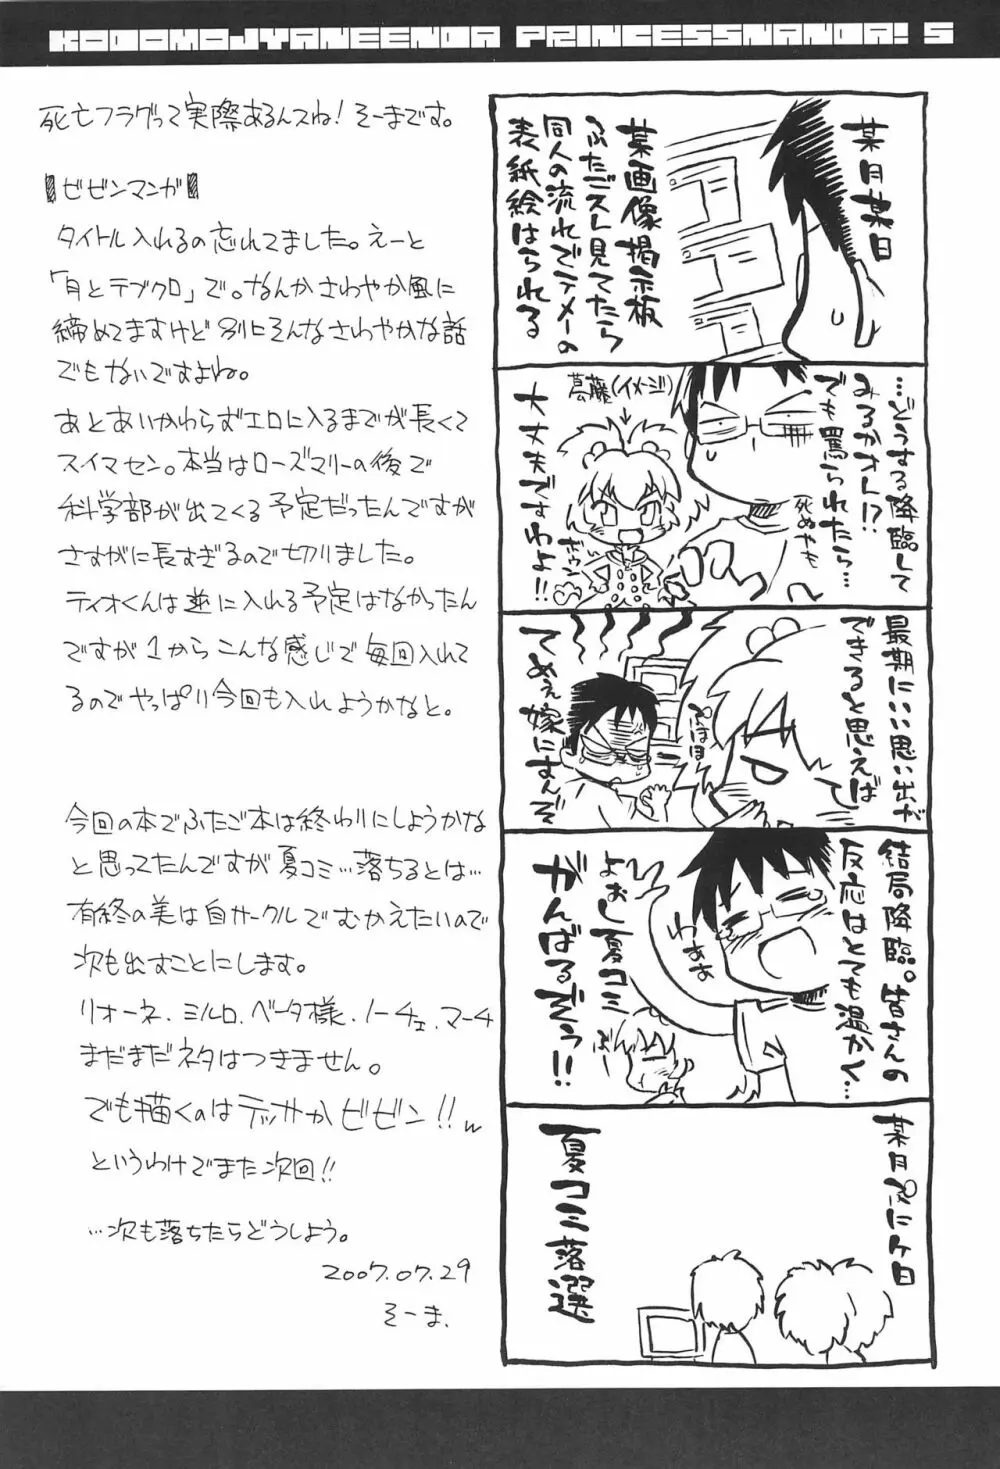 KODOMOJYANEENDA PRINCESSNANDA! 5
死亡フラグって実際あるんスね！そーまです。
【ビゼンマンガ】
タイトル入れるの忘れてました。えーと
「月とテブクロ」で。なんかさわやか風に
締めてますけど別にそんなさわやかな話
でもないですよね。
あとあいかわらずエロに入るまでが長くて
スイマセン。本当はローズマリーの後で
科学部が出てくる予定だったんですが
さすがに長すぎるので切りました。
ティオくんは並に入れる予定はなかったん
ですが1からこんな感じで毎回入れて
るのでやっぱり今回も入れようかなと。
今回の本でふたご本は終わりにしようかな
と思ってたんですが夏コミ…落ちるとは…
有終の美は自サークルでむかえたいので
次も出すことにします。
リオーネ、ミルロ、ベータ様、ノーチェ、マーチ
まだまだネタはつきません。
でも描くのはテッサかビゼン!!w
というわけでまた次回!!
…次も落ちたらどうしよう。
2007.07.29
そーま.
某月某日
某画像掲示板
ふたごスレ見てたら
同人の流れでテメーの
表紙絵はられる
…どうする降臨して
みるかオレ!?
でも罵られたら…
死ぬやも
葛藤(イメージ)
大丈夫ですわよ!!
最期にいい思い出が
できると思えば
てめぇ嫁にすんぞ
結局降臨。皆さんの
反応はとても温かく…
わぁぁ
よぉし夏コミ
がんばるぞぅ!!
夏コミ落選